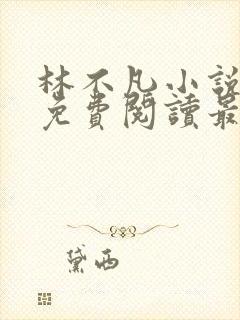 林不凡小說
免費閱讀最
黛西